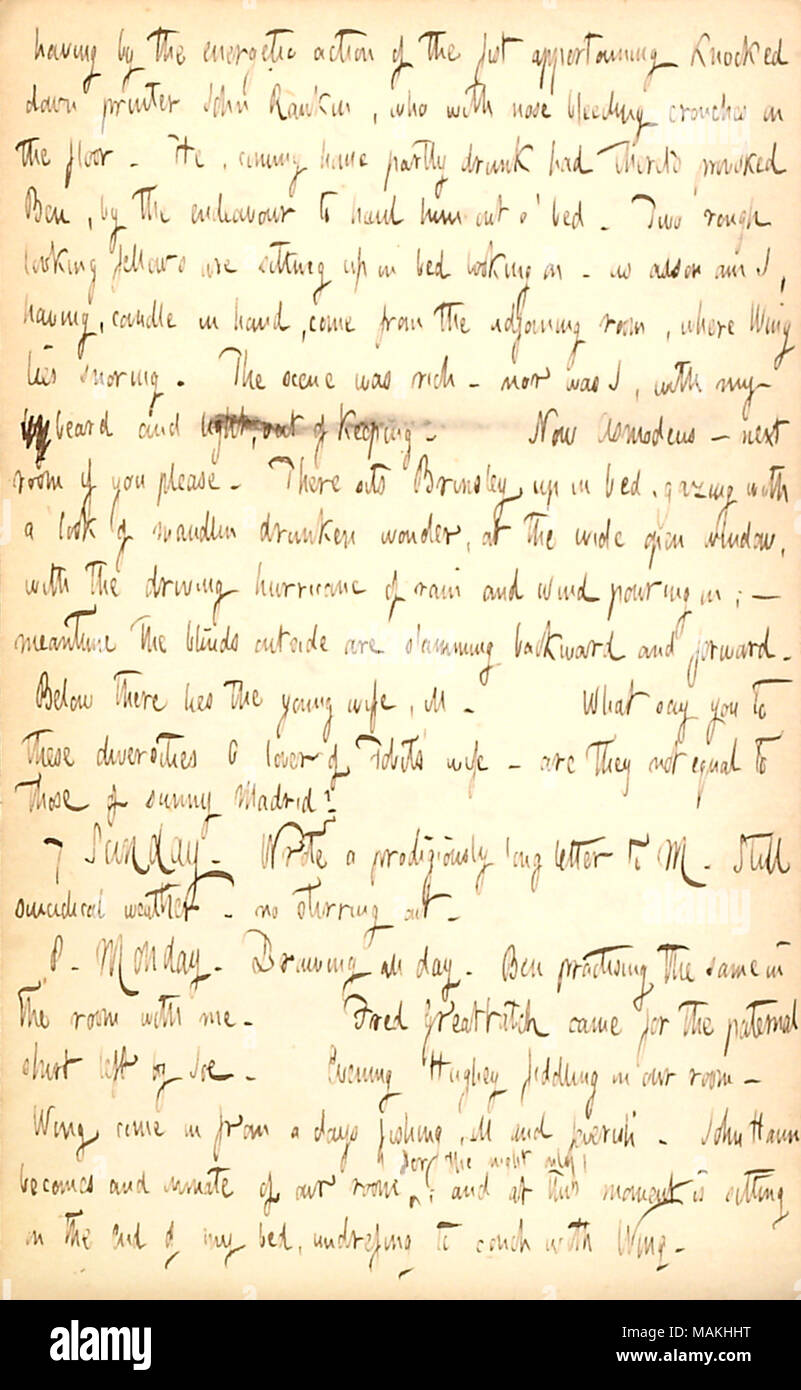 having by the energetic action of the fist appertaining Knocked
down printer John Rankin, who with nose bleeding crouches on
the floor. He, coming home partly drunk had thereto provoked
Ben, by the endeavour to haul him out o' bed. Two rough
looking fellows are sitting up in bed looking on - as also am I,
having, candle in hand, come from the adjoining room, where Wing
lies snoring. The scene was rich - nor was I, with my
beard and light, out of Keeping. Now Asmodeus - next
room if you please. There sits Brinsley up in bed, gazing with
a look of maudlin drunken wonder, at the wide open window,
with the driving hurricane of rain and wind pouring in; -
meantime the blinds outside are slamming backward and forward.
Below there lies the young wife, ill. What say you to
these diversities O lover of Tobits wife - are they not equal to
those of sunny Madrid?
7 Sunday. Wrote a prodigiously long letter to M. Still
suicidical weather - no stirring out.
8. Monday. Drawing all day. Ben practising the same in
the room with me. Fred Greatbatch came for the paternal
shirt left by Joe. Evening Hughey fiddling in our room -
Wing come in from a days fishing, ill and feverish. John Hann
becomes and inmate of our room for the night only!; and at this moment is sitting
on the end of my bed, undressing to couch with Wing.
alamy
Image ID: MAKHHT
www.alamy.com